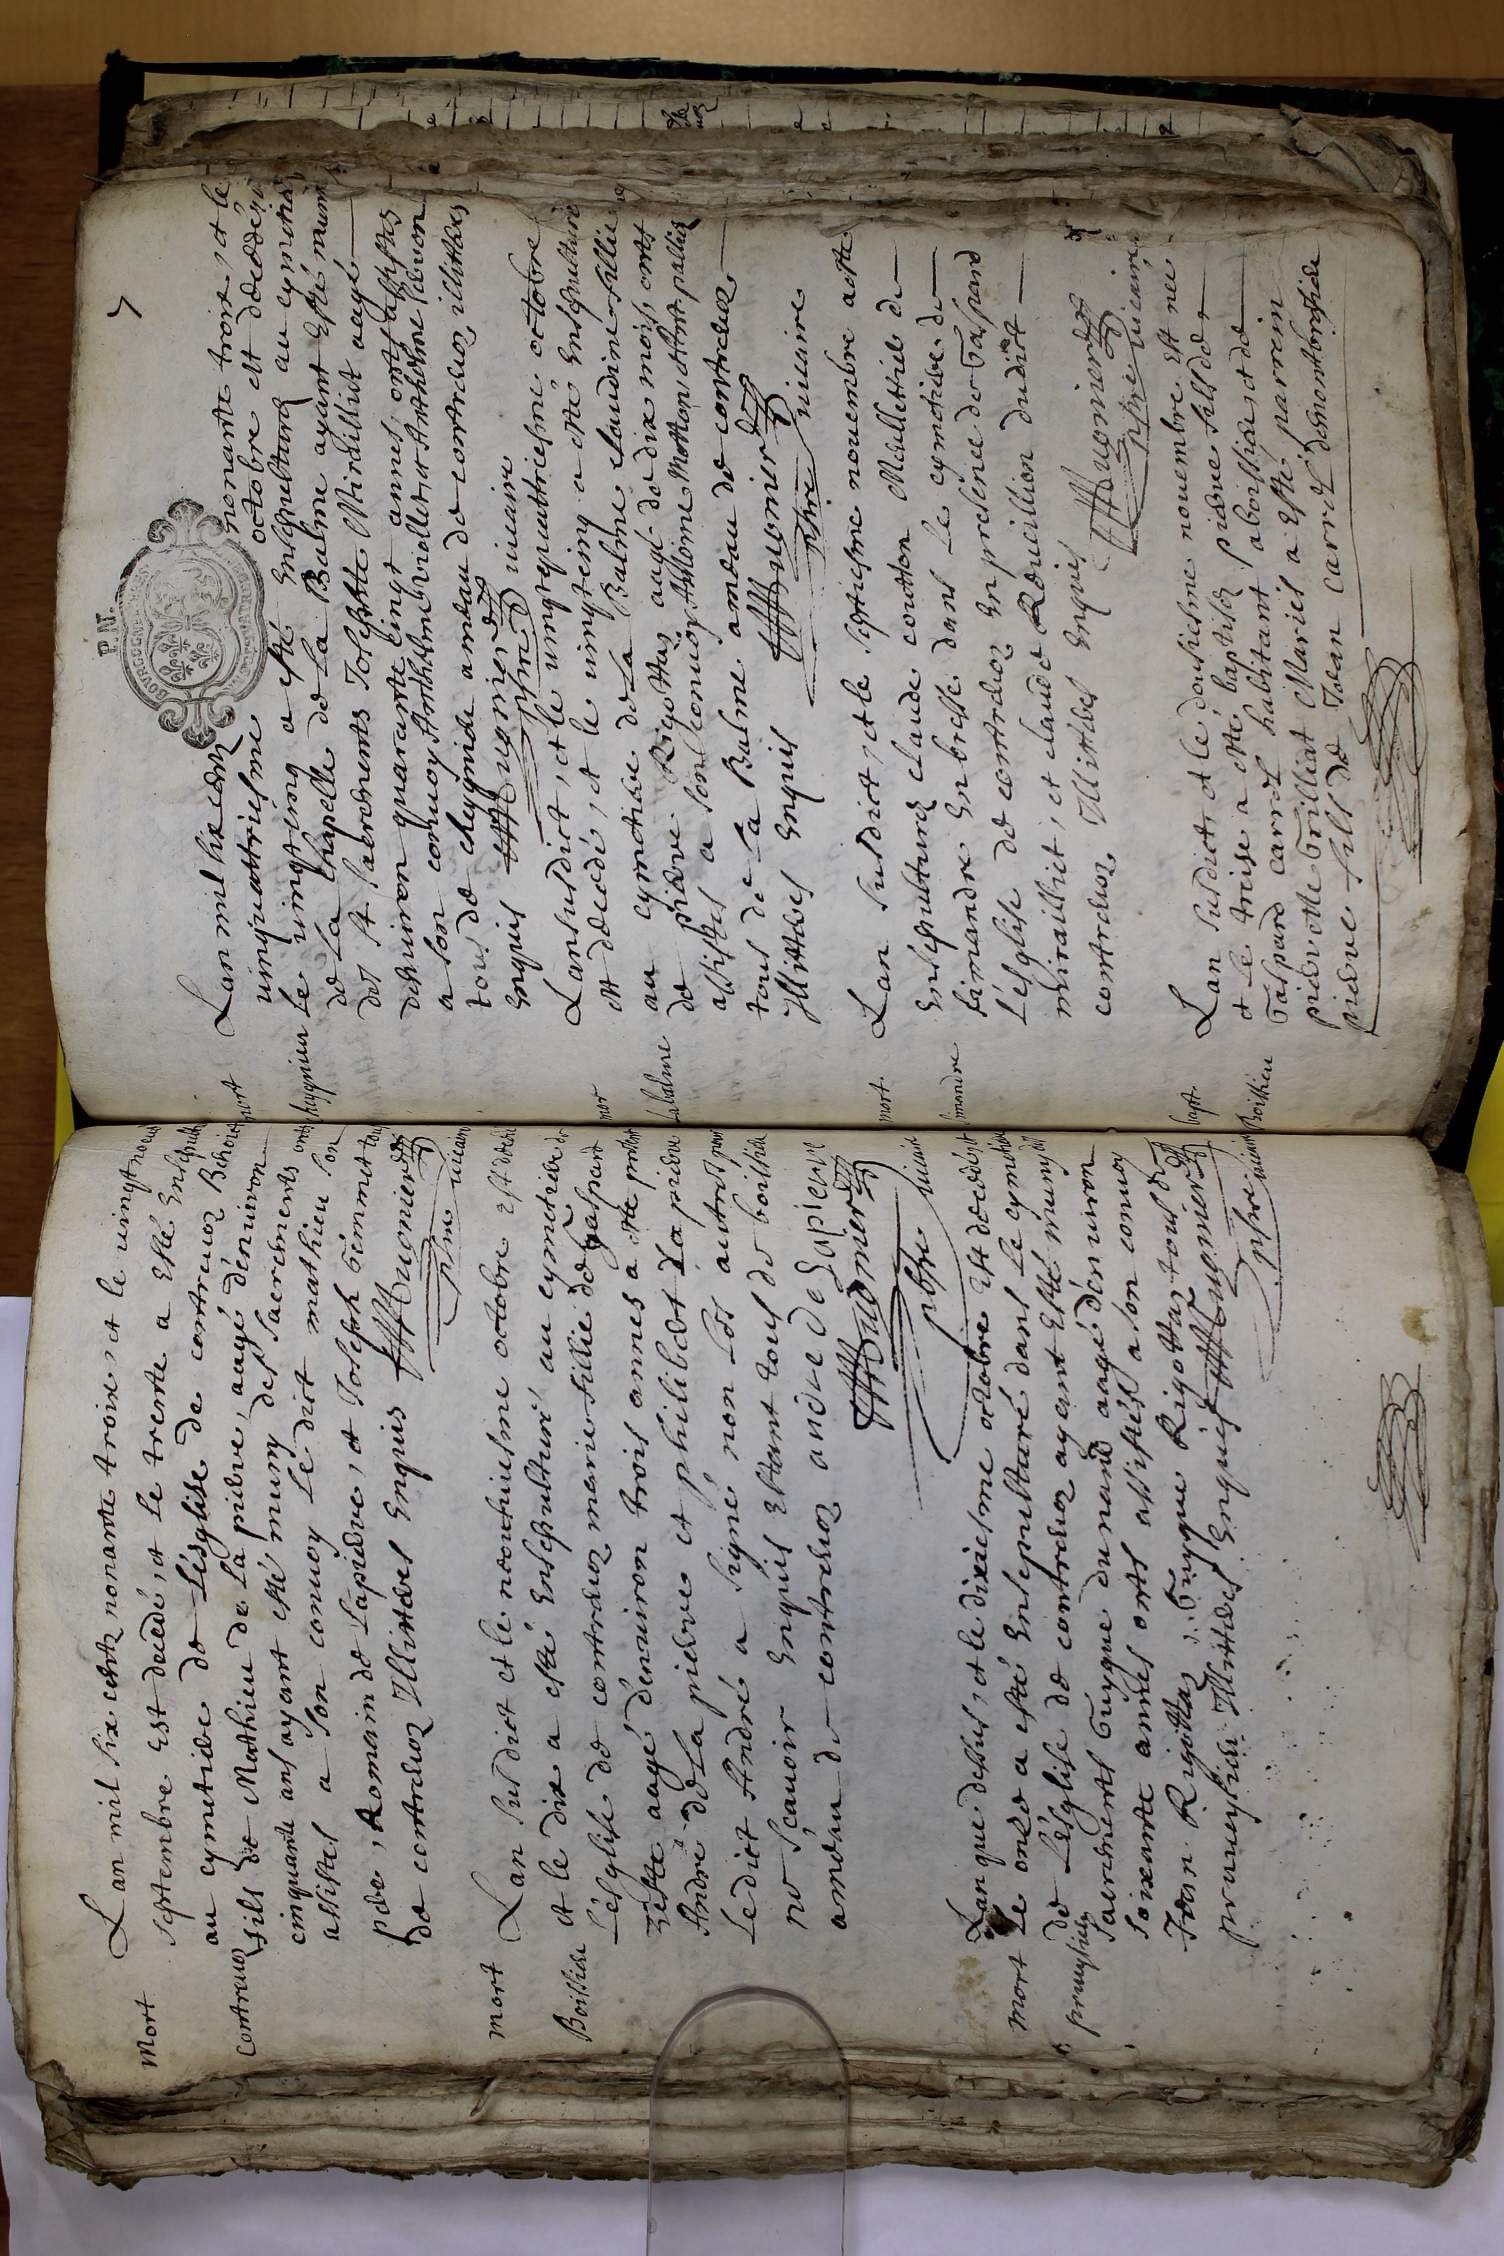 mort
Contrevoz
Lan mil six centz nonante trois, et le vingt neuf
septembre est decedé, et le trente a esté ensepulturé
au cymetiere de L'eglise de contrevoz Benoist
fils de Mathieu de La pierre, aagé d'environ
cinquante ans ayant esté muny des sacrements ont
assistes a son convoy Le dict mathieu son
pere, Romain de Lapierre, et Joseph Gimmet tous
de contrevoz Illitteres Enquis Hugonier
pbre vicaire
mort
Boissieu
Lan susdict et le neoufuiesme octobre est decedé
et le dix a esté ensepulturé au cymetiere de
L'eglise de contrevoz marie fillie de gaspard
aagé d'environ trois annes a esté present
André de La pierre et philibert La pierre
Ledict André a signé, non Les autres pour
ne sçavoir Enquis estant tous de boissieu
ameau de contrevoz andre de Lapierre
Hugonier
pbre vicaire
mort
prumeysieu
Lan que dessus, et le dixiesme octobre est decedé et
Le onze a esté Ensepulturé dans le cymetiere
de L'esglise de contrevoz ayant esté muny des
sacrements Guygue Dunand aagé d'environ
soixante annes onts assistés a son convoy
Jean Rigottaz, Guygue Rigottaz tous de
prumeysieu Illitteres Enquis Hugonier
pbre vicaire
7
P.N.
mort
cheygnieu
Lan mil six centz nonante trois, et le
vingquattriesme octobre est decedé, et
Le vingt cinq a esté ensepulturé au cymetiere
de La chapelle de La Balme ayant Esté muni
des st sacrements Josephte Miraillict aagé
d'environ quarante cinqt annes, onts assistes
a son convoy Anthelme viollet et Anthelme
tous de cheygnieu ameau de contrevoz illitteres
Enquis Hugonier
pbre vicaire
mor
Labalme
Lan susdict, et le vingtquattriesme octobre
est decedé, et le vingtcinq a esté ensepulturé
au cymetiere de La Balme claudine fillie
de pierre Rigottaz aagé de dix mois, onts
assistes a son convoy Anthoine Motton, pallier
tous de La Balme ameau de contrevoz
Illitteres Enquis Hugonier
pbre vicaire
mort
simandre
Lan susdict, et le septiesme novembre a esté
Ensepulturé claude couston de
simandre En bresse dans Le cymetiere de
L'esglise de contrevoz En presence de Gaspard
miraillict, et claude Reveillion dudict
contrevoz Illitteres Enquis Hugonier
pbre vicaire
bapt
Boissieu
Lan susdict et le dousiesme novembre est né
et le treise a esté baptisé pierre fils de
Gaspard carrel habitant a boissieu, et de
pierrette Grilliat Mariés a esté parrein
pierre fils de Jean carrel